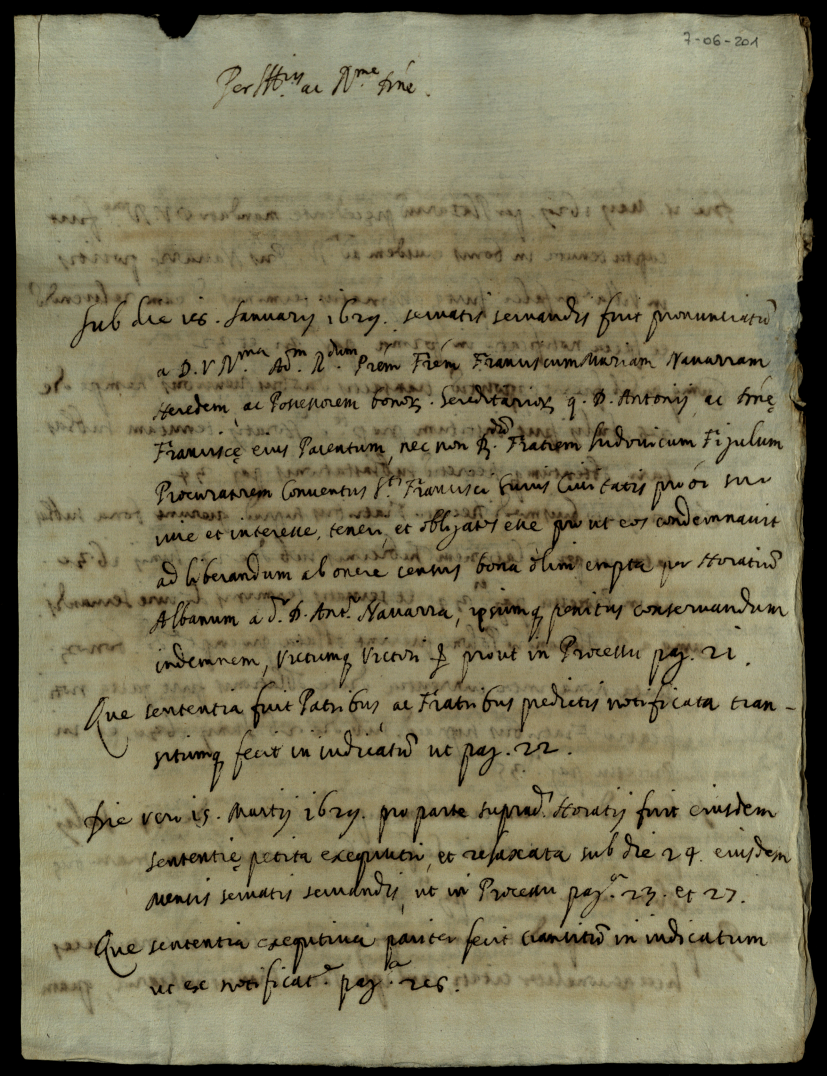 7-06-201
Per Ill.is ac R.me Dñe.
Sub die 16. Januarij 1629. servatis servandis fuit pronunciatũ
a D. V. R.ma Ad.m R.dum Prẽm Frẽm Franciscum Mariam Navarram
Heredem, ac Possessorem bonoꝝ. Hereditarioꝝ q. D. Antonij ac Dñę
Franciscę eius Parentum, nec non R.dũ Fratrem Ludovicum Figulum
Procuratorem Conventus S.ti Francisci huius Civitatis pro oĩ suo
iure et interesse, teneri, et obligatos esse pro ut eos condemnavit
ad liberandum ab onere census bona olim empta per Horatiũ
Albanum a d.o D. Ant.o Navarra, ipsumq penitus conservandum
indemnem, victumq victori prout in Processu pag. 21.
Que sententia fuit Patribus, ac Fratribus predictis notificata tran-
situmq fecit in iudicatũ ut pag. 22.
Die vero 15. Martij 1629. pro parte suprad.i Horatij fuit eiusdem
sententię petita exequutio, et relaxata sub die 24. eiusdem
mensis servatis servandis, ut in Processu pag.a 23. et 27.
Que sententia exequtiva pariter fecit transitũ in iudicatum
ut ex notificat.e pag.a 26.